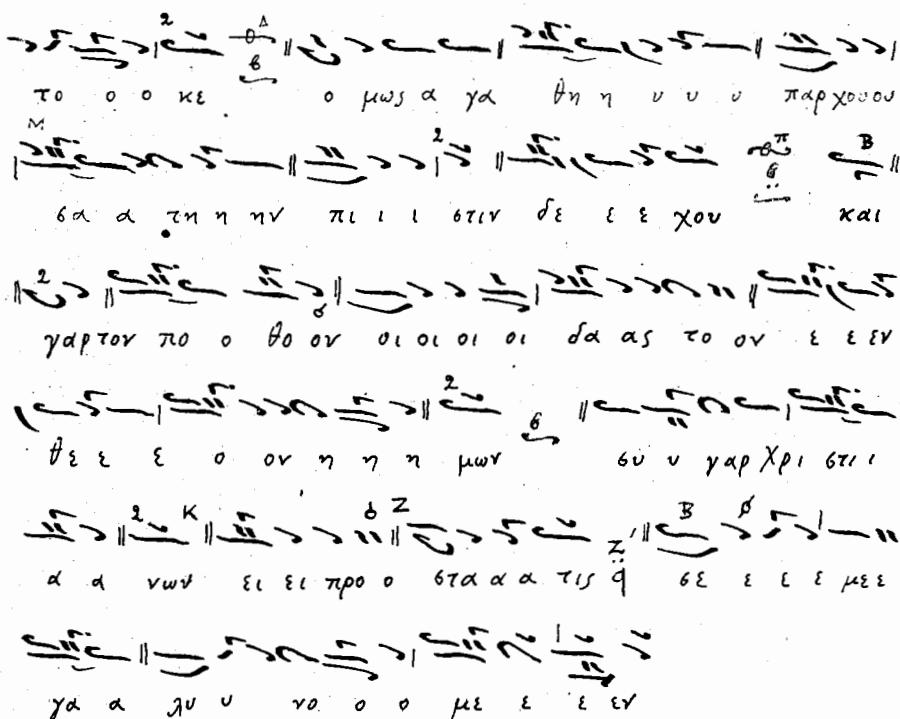 το ο ο κε ο μως α γα θη η υ υ υ παρχουου
σα α τη η ην πι ι ι στιν δε ε ε χου και
γαρ τον πο ο θο ον οι οι οι οι δα ας το ον ε ε εν
θε ε ε ο ον η η η μων συ υ γαρ χρι στι ι
α α νων ει ει προ ο στα α α τις σε ε ε ε με ε
γα α λυ υ νο ο ο με ε ε εν